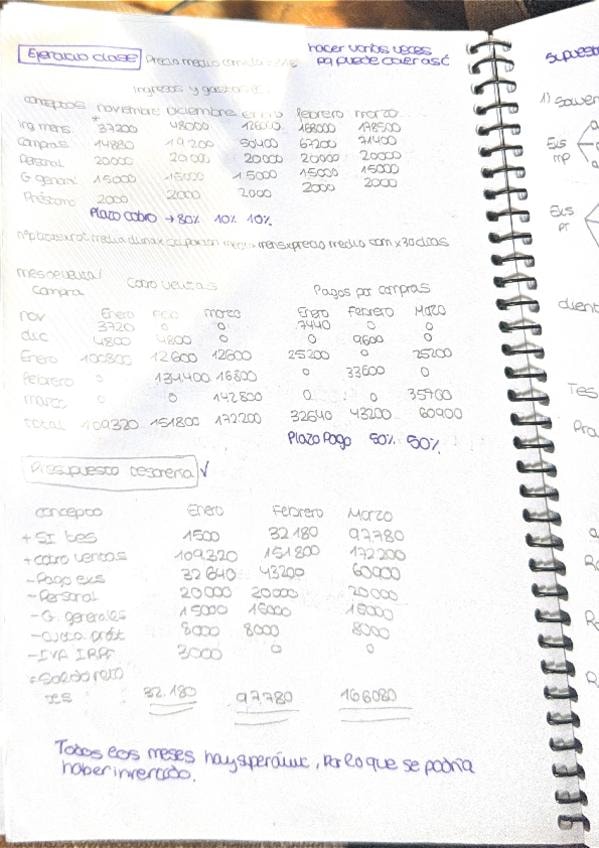 Ejercicio clase Precio medio comida
hacer varias veces
pq puede caer así
ingresos y gastos
conceptos noviembre diciembre enero febrero marzo
ing mens 37200 48000 126000 168000 178500
compras 14880 19200 50400 67200 71400
Personal 20000 20000 20000 20000 20000
G. general 15000 15000 15000 15000 15000
Préstamo 2000 2000 2000 2000 2000
Plazo cobro → 80% 10% 10%
mes de venta/
compra
Cobro ventas Pagos por compras
Enero Feb marzo Enero Febrero Marzo
nov 3720 0 0 7440 0 0
dic 4800 4800 0 9600 0
Enero 100800 12600 12600 25200 0 25200
Febrero 0 134400 16800 0 33600 0
marzo 0 0 142800 0 0 35700
total 109320 151800 172200 32640 43200 60900
Plazo Pago 50% 50%
Presupuesto tesorería √
concepto Enero Febrero Marzo
+ SI tes 1500 32180 97780
+ cobro ventas 109320 151800 172200
- Pago exs 32640 43200 60900
- Personal 20000 20000 20000
- G. generales 15000 15000 15000
- Cuota prést 8000 8000 8000
- IVA IRPF 3000 0 0
= Saldo neto
tes 32.180 97780 166080
Todos los meses hay superávit, por lo que se podría
haber invertido.
supuest
1)
Exs
MP
Exs
PT
client
Tes